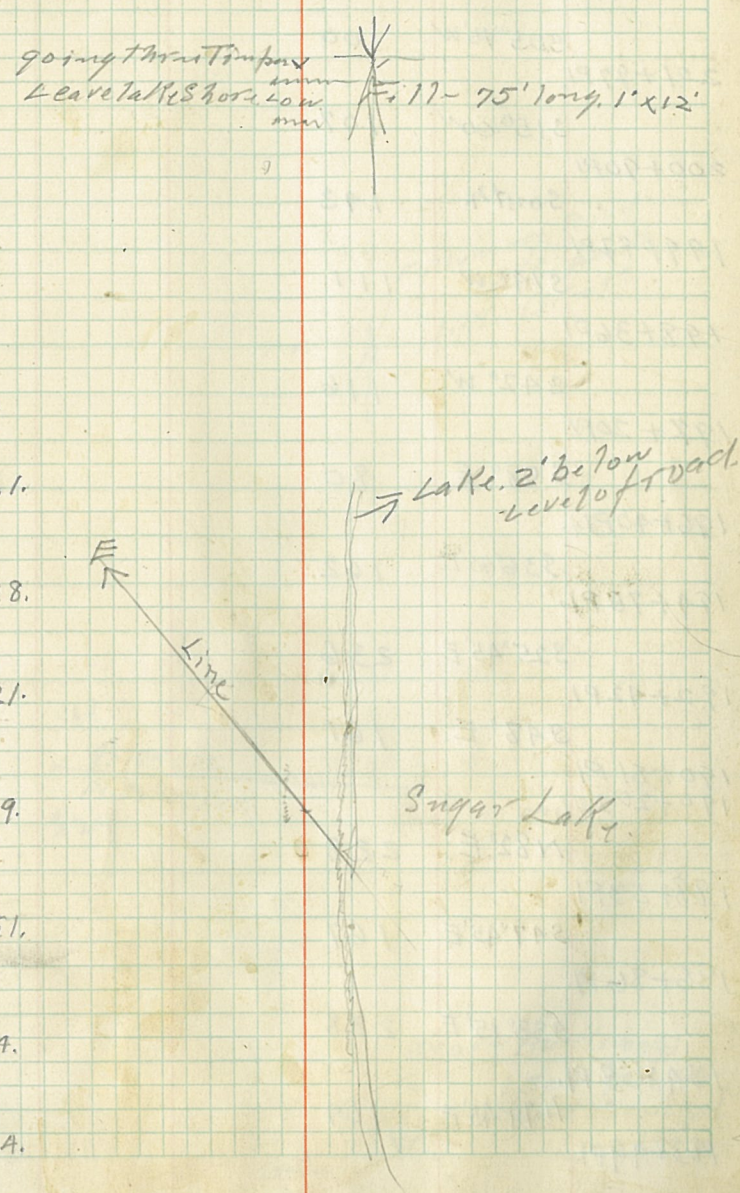 going thru Timber
Leave lake Shore Low
Fill - 75' long. 1' x 12'
Lake. 2' below
Level of road.
1.
E
8.
Line
21.
9.
Sugar Lake.
51.
4.
A.